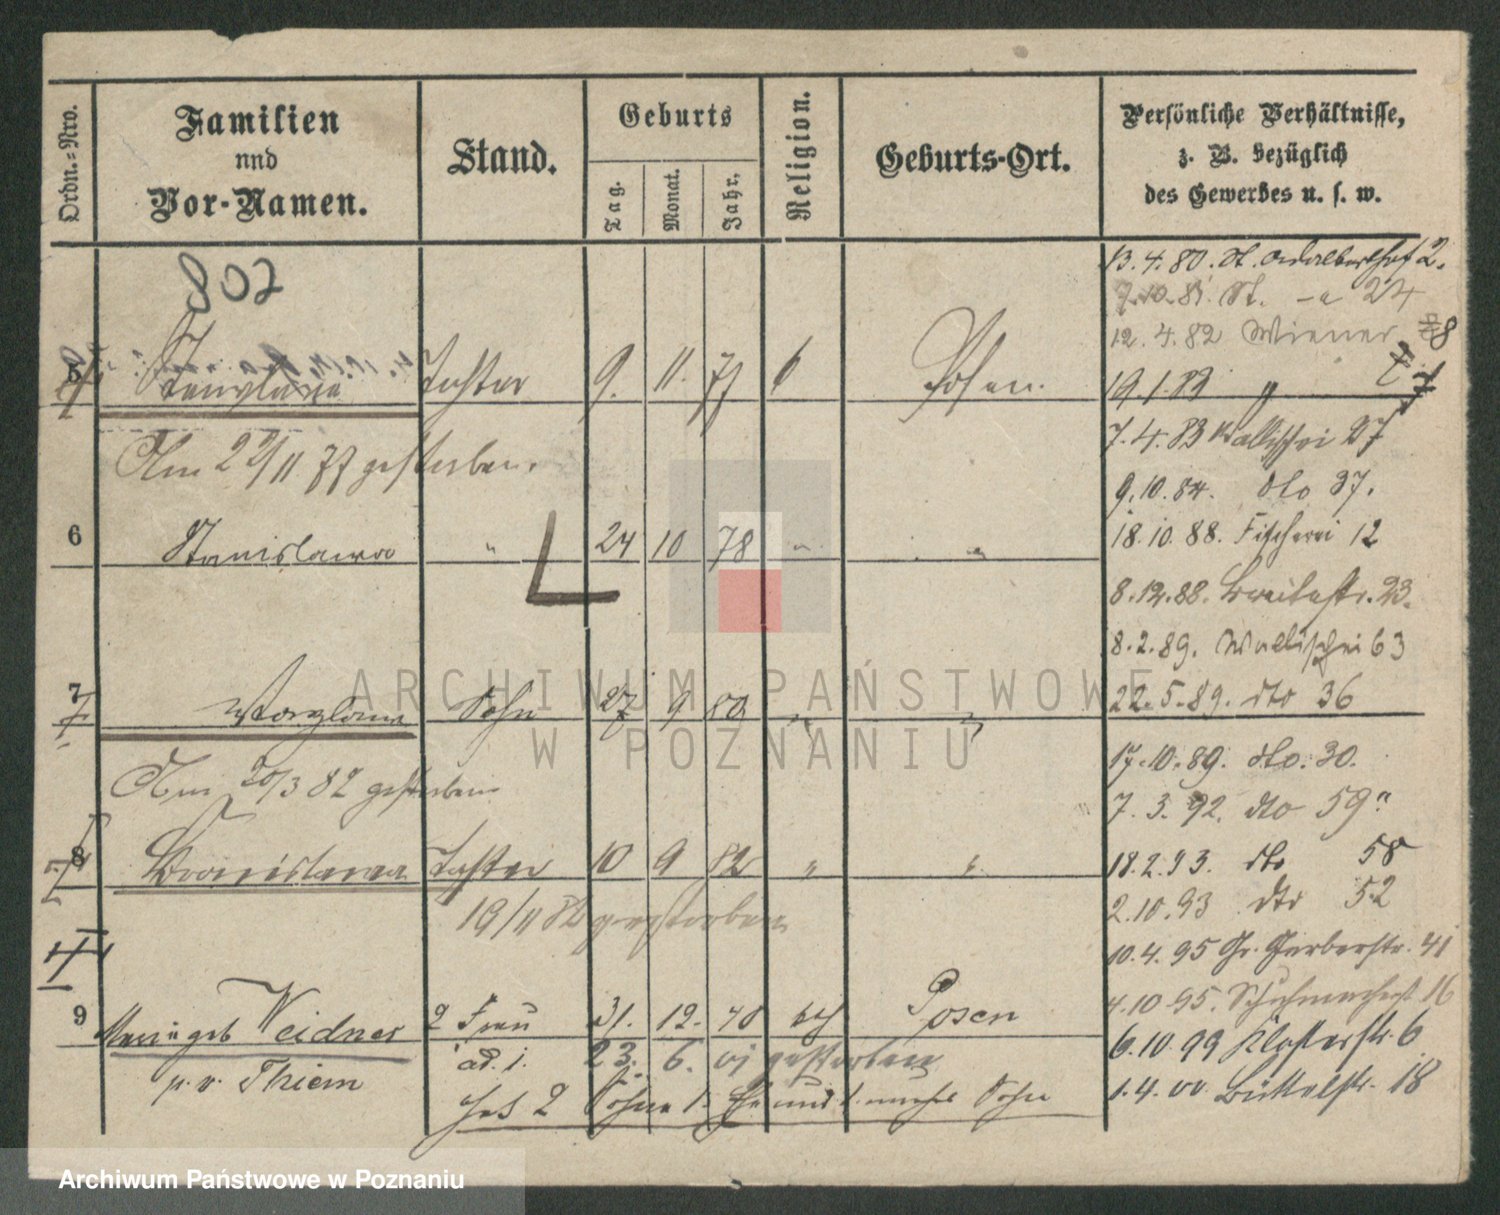 Ordn.=Nro.
Familien
und
Vor-Namen.
Stand.
Geburts
Tag.
Monat.
Jahr.
Religion.
Geburts-Ort.
Persönliche Verhältnisse,
z. B. bezüglich
des Gewerbes u. s. w.
802
13.4.80. St. Adalberthof 2.
7.10.81. St. — a 24
12.4.82 Wiener 8
5 Tochter 9. 11. 77 k Posen.
19.1.83 "
7.4.83 Wallischei 27
Am 22/11 77 gestorben.
9.10.84. dto 37.
6 Stanislawa " 24 10 78 " "
18.10.88. Fischerei 12
8.12.88. Breitestr. 23.
8.2.89. Wallischei 63
7 Sohn 27 9 80 " "
22.5.89. dto 36
17.10.89. dto. 30.
Am 20/3 82 gestorben
7.3.92. dto 59"
8 Bronislawa Tochter 10 9 82 " "
18.2.93. dto 58
19/11 82 gestorben
2.10.93 dto 52
10.4.95 Gr. Gerberstr. 41
4.10.95. Schuhmacherst 16
9 Marie geb Weidner 2 Frau 31. 12. 40 kath Posen
6.10.99 Klosterstr. 6
p. v. Thiem ad. 1. 23. 6. 01 gestorben
1.4.00. Büttelstr. 18
hat 2 Söhne 1. Ehe und 1. unehel Sohn
ARCHIWUM PAŃSTWOWE
W POZNANIU
Archiwum Państwowe w Poznaniu